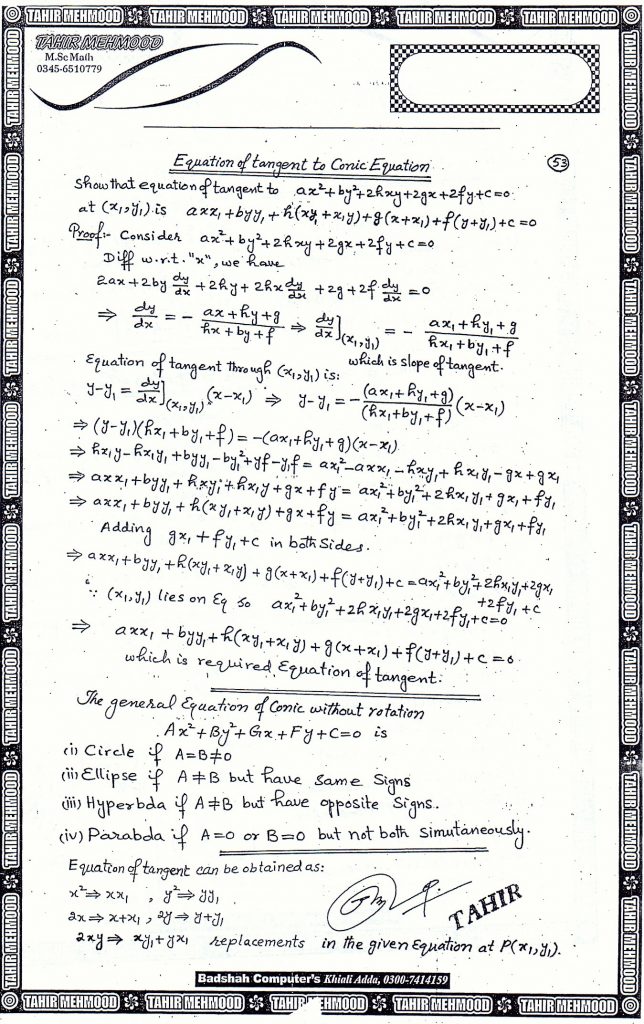 TAHIR MEHMOOD TAHIR MEHMOOD TAHIR MEHMOOD TAHIR MEHMOOD TAHIR MEHMOOD
TAHIR MEHMOOD
M.Sc Math
0345-6510779
Equation of tangent to Conic Equation
53
Show that equation of tangent to ax²+by²+2hxy+2gx+2fy+c=0
at (x₁,y₁) is axx₁+byy₁+h(xy₁+x₁y)+g(x+x₁)+f(y+y₁)+c=0
Proof:- Consider ax²+by²+2hxy+2gx+2fy+c=0
Diff w.r.t. "x", we have
2ax+2by dy/dx+2hy+2hx dy/dx+2g+2f dy/dx=0
⇒ dy/dx = - (ax+hy+g)/(hx+by+f) ⇒ dy/dx](x₁,y₁) = - (ax₁+hy₁+g)/(hx₁+by₁+f)
which is slope of tangent.
Equation of tangent through (x₁,y₁) is:
y-y₁ = dy/dx](x₁,y₁) (x-x₁) ⇒ y-y₁ = - (ax₁+hy₁+g)/(hx₁+by₁+f) (x-x₁)
⇒ (y-y₁)(hx₁+by₁+f) = -(ax₁+hy₁+g)(x-x₁)
⇒ hx₁y-hx₁y₁+byy₁-by₁²+yf-y₁f = ax₁²-axx₁-hxy₁+hx₁y₁-gx+gx₁
⇒ axx₁+byy₁+hxy₁+hx₁y+gx+fy = ax₁²+by₁²+2hx₁y₁+gx₁+fy₁
⇒ axx₁+byy₁+h(xy₁+x₁y)+gx+fy = ax₁²+by₁²+2hx₁y₁+gx₁+fy₁
Adding gx₁+fy₁+c in both Sides.
⇒ axx₁+byy₁+h(xy₁+x₁y)+g(x+x₁)+f(y+y₁)+c = ax₁²+by₁²+2hx₁y₁+2gx₁
+2fy₁+c
∵ (x₁,y₁) lies on Eq so ax₁²+by₁²+2hx₁y₁+2gx₁+2fy₁+c=0
⇒ axx₁+byy₁+h(xy₁+x₁y)+g(x+x₁)+f(y+y₁)+c=0
which is required Equation of tangent.
The general Equation of Conic without rotation
Ax²+By²+Gx+Fy+C=0 is
(i) Circle if A=B≠0
(ii) Ellipse if A≠B but have Same Signs
(iii) Hyperbda if A≠B but have opposite Signs.
(iv) Parabda if A=0 or B=0 but not both simutaneously.
Equation of tangent can be obtained as:
x²⇒xx₁ , y²⇒yy₁
2x⇒x+x₁ , 2y⇒y+y₁
2xy⇒ xy₁+yx₁ replacements in the given Equation at P(x₁,y₁).
TAHIR
Badshah Computer's Khiali Adda, 0300-7414159
TAHIR MEHMOOD TAHIR MEHMOOD TAHIR MEHMOOD TAHIR MEHMOOD TAHIR MEHMOOD